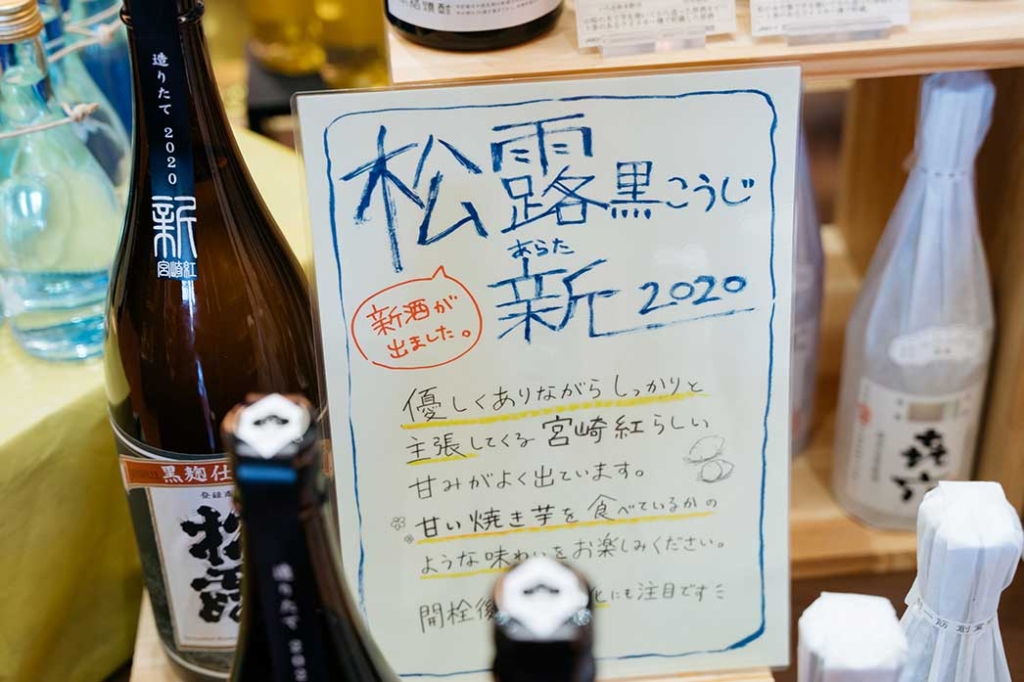 造りたて 2020
新
宮崎紅
黒麹仕
松露
造りたて 202
松露黒こうじ
あらた
新 2020
新酒が
出ました。
優しくありながら しっかりと
主張してくる 宮崎紅らしい
甘みがよく出ています。
甘い焼き芋を食べているかの
ような味わいをお楽しみください。
開栓後
化にも注目です
㐂六